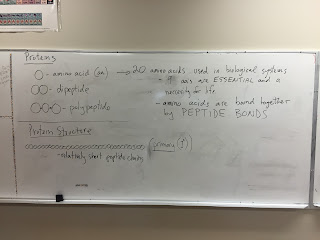 Proteins
amino acid (aa) → 20 amino acids used in biological systems
- 9 aa's are ESSENTIAL and a
necessity for life
dipeptide
polypeptide
- amino acids are bond together
by PEPTIDE BONDS
Protein Structure
primary (1°)
- relatively short peptide chains